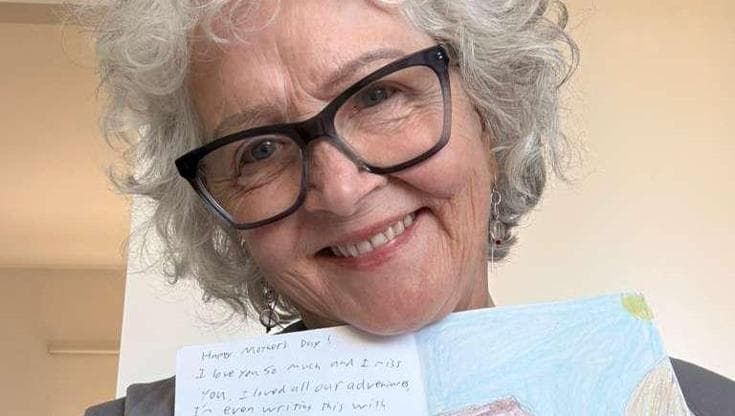 Happy Mother's Day!
I love you so much and I miss
you. I loved all our adventures,
I'm even writing this with